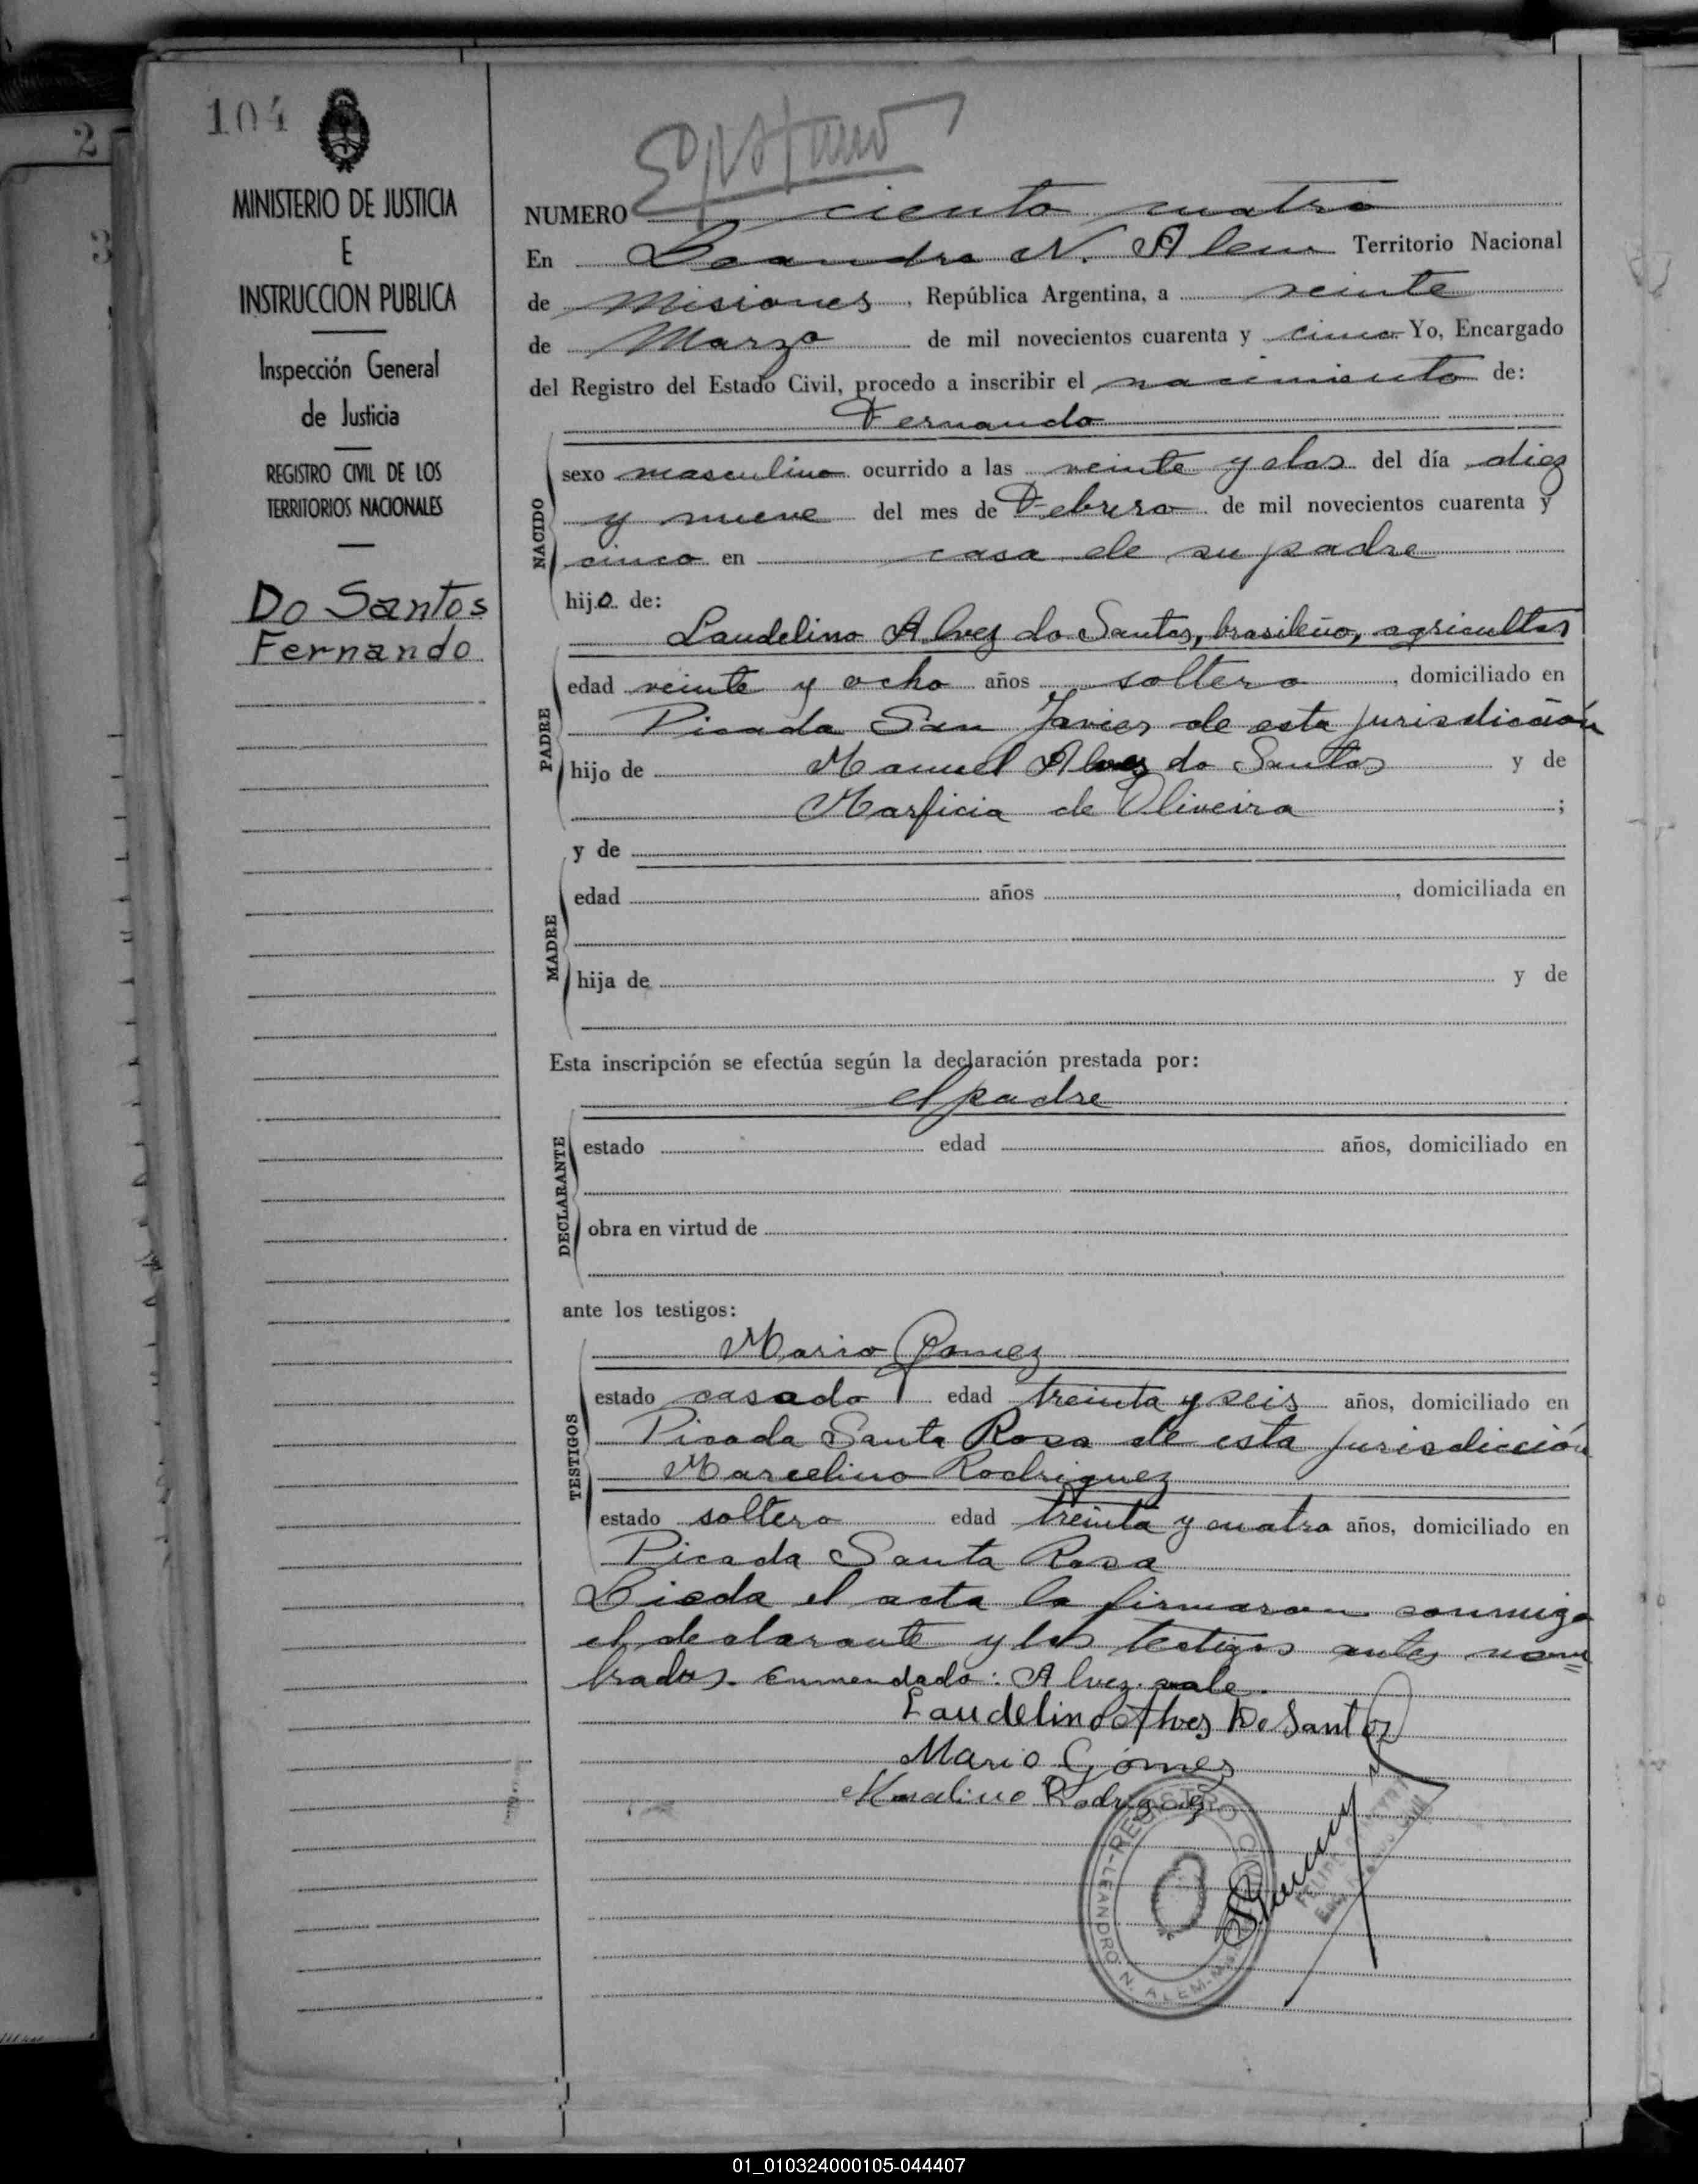 104
MINISTERIO DE JUSTICIA
E
INSTRUCCION PUBLICA
Inspección General
de Justicia
REGISTRO CIVIL DE LOS
TERRITORIOS NACIONALES
Do Santos
Fernando
NUMERO ciento cuatro
En Leandro N. Alem Territorio Nacional
de Misiones, República Argentina, a veinte
de Marzo de mil novecientos cuarenta y cinco Yo, Encargado
del Registro del Estado Civil, procedo a inscribir el nacimiento de:
Fernando
NACIDO
sexo masculino ocurrido a las veinte y dos del día diez
y nueve del mes de Febrero de mil novecientos cuarenta y
cinco en casa de su padre
hijo de:
Laudelino Alvez do Santos, brasileño, agricultor
PADRE
edad veinte y ocho años soltero, domiciliado en
Picada San Javier de esta jurisdicción
hijo de Manuel Alvez do Santos y de
Marficia de Oliveira ;
y de
MADRE
edad años , domiciliada en
hija de y de
Esta inscripción se efectúa según la declaración prestada por:
el padre
DECLARANTE
estado edad años, domiciliado en
obra en virtud de
ante los testigos:
Mario Gomez
TESTIGOS
estado casado edad treinta y seis años, domiciliado en
Picada Santa Rosa de esta jurisdicción
Marcelino Rodriguez
estado soltero edad treinta y cuatro años, domiciliado en
Picada Santa Rosa
Leida el acta la firmaron conmigo
el declarante y los testigos antes nom=
brados. Enmendado: Alvez. vale.
Laudelino Alves Do Santos
Mario Gomes
Marcelino Rodriguez
REGISTRO CIVIL
LEANDRO N. ALEM
01_010324000105-044407